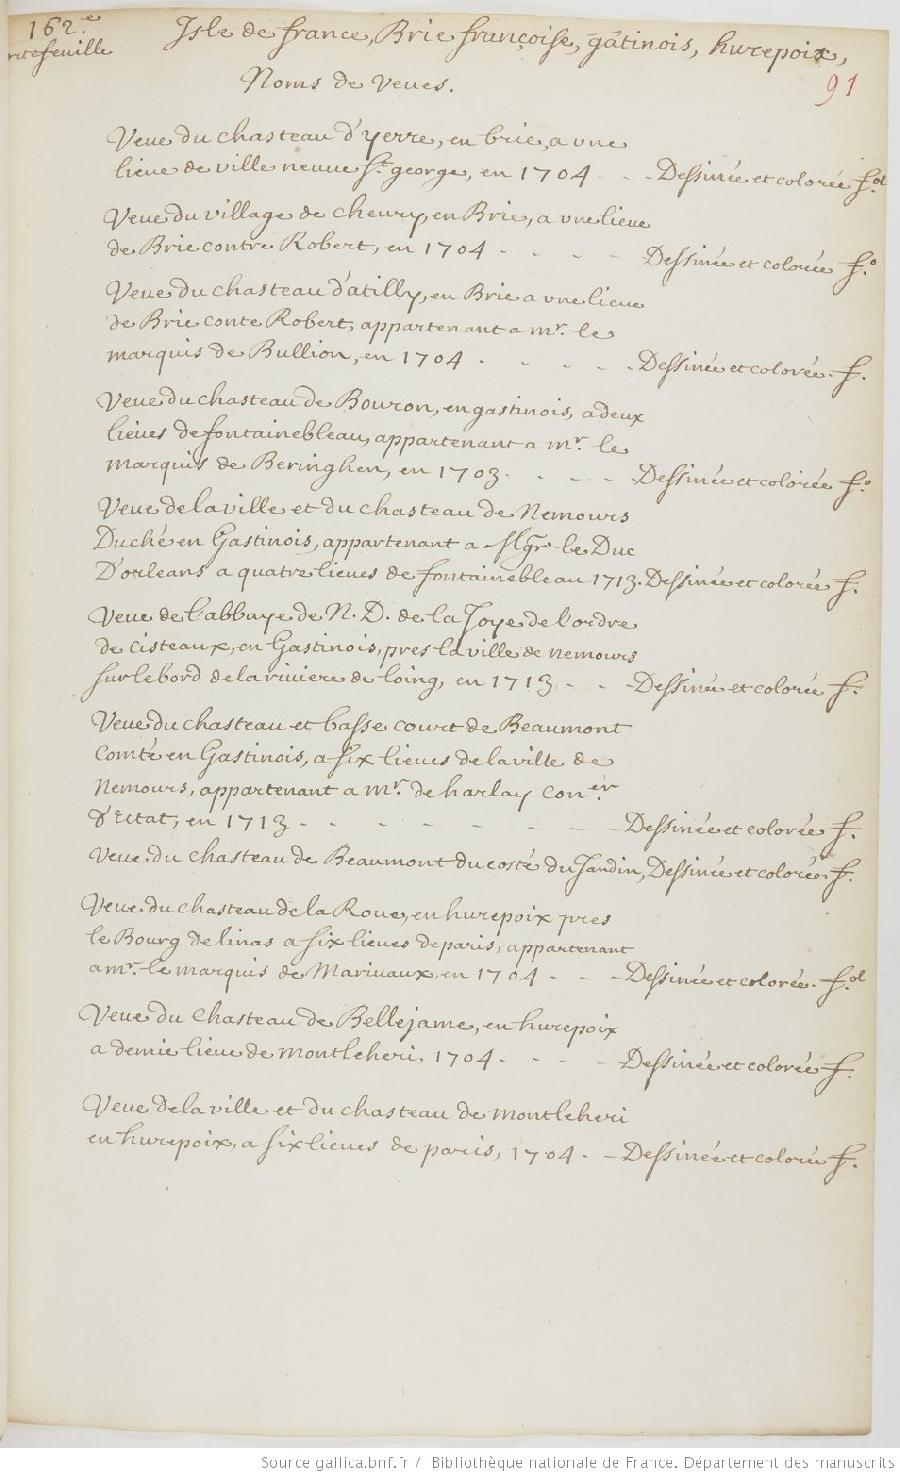 162.e
rtefeuille
Isle de france, Brie françoise, gâtinois, hurepoix,
Noms de Veues.
91
Veue du chasteau d'yerre, en brie, a une
lieue de ville neuue St. george, en 1704 - - - Dessinée et colorée fol.
Veue du village de cheury en Brie, a une lieue
de Brie contre Robert, en 1704 - - - - Dessinée et colorée fo.
Veue du chasteau d'atilly, en Brie a une lieue
de Brie conte Robert, appartenant a mr. le
marquis de Bullion, en 1704 . - . - - - Dessinée et colorée. f.
Veue du chasteau de Bouron, en gastinois, a deux
lieues de fontainebleau, appartenant a mr. le
marquis de Beringhen, en 1703. - . - - - Dessinée et colorée fo.
Veue de la ville et du chasteau de Nemours
Duché en Gastinois, appartenant a Mgr. le Duc
D'orleans a quatre lieues de fontainebleau 1713. Dessinée et colorée f.
Veue de l'abbaye de N. D. de la Joye de l'ordre
de cisteaux, en Gastinois, pres la ville de nemours
sur le bord de la riviere de loing, en 1713 - - - Dessinée et colorée f.
Veue du chasteau et basse court de Beaumont
Comté en Gastinois, a six lieues de la ville de
Nemours, appartenant a mr. de harlay coner.
d'Estat, en 1713 - - - - - - - Dessinée et colorée f.
Veue du chasteau de Beaumont du costé du Jardin, Dessinée et colorée f.
Veue du chasteau de la Roue, en hurepoix pres
le Bourg de linas a six lieues de paris, appartenant
a mr. le marquis de Mariuaux, en 1704 - - - Dessinée et colorée. fol.
Veue du Chasteau de Bellejame, en hurepoix
a demie lieue de montleheri, 1704 - - - - Dessinée et colorée f.
Veue de la ville et du chasteau de montleheri
en hurepoix, a six lieues de paris, 1704 . - - Dessinée et colorée f.
Source gallica.bnf.fr / Bibliothèque nationale de France. Département des manuscrits